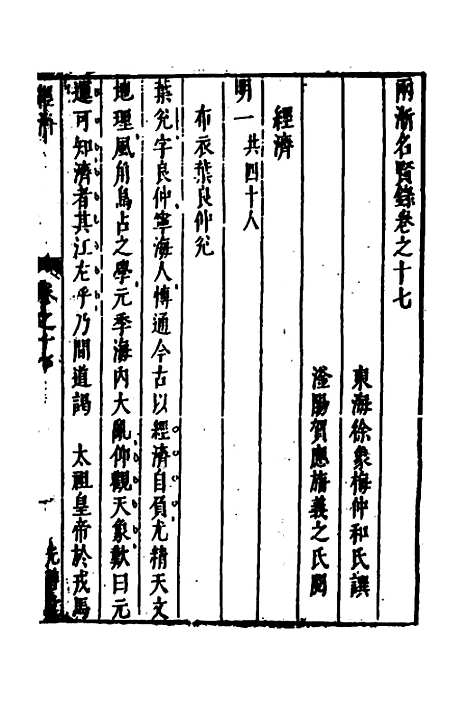 兩浙名賢錄卷之十七
東海徐象梅仲和氏譔
瀅陽賀應旛義之氏閱
經濟
明一共四十八
布衣葉良仲兊
葉兊字良仲寧海人博通今古以經濟自負尤精天文
地理風角鳥占之學元季海內大亂仰觀天象歎曰元
運可知濟者其江左乎乃間道謁 太祖皇帝於戎馬
經濟 卷之十七